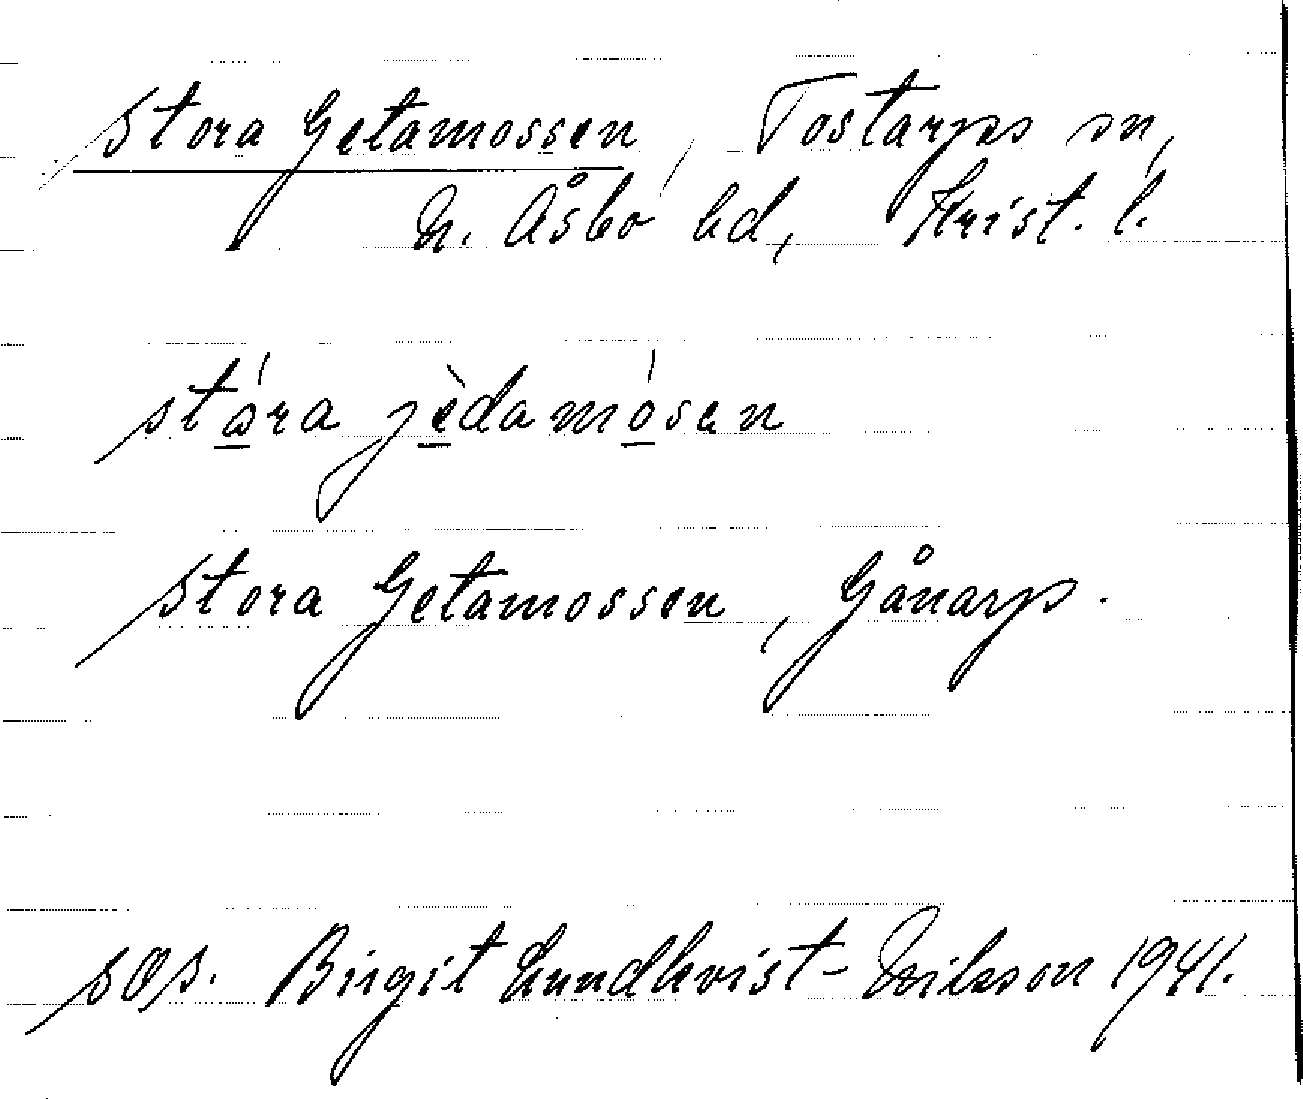 Stora Getamossen, Tostarps sn,
N. Åsbo hd, Krist. l.
stó̲ra jè̲damó̲sen
Stora Getamossen, Gånarp.
Birgit Lundkvist-Nilsson 1941.